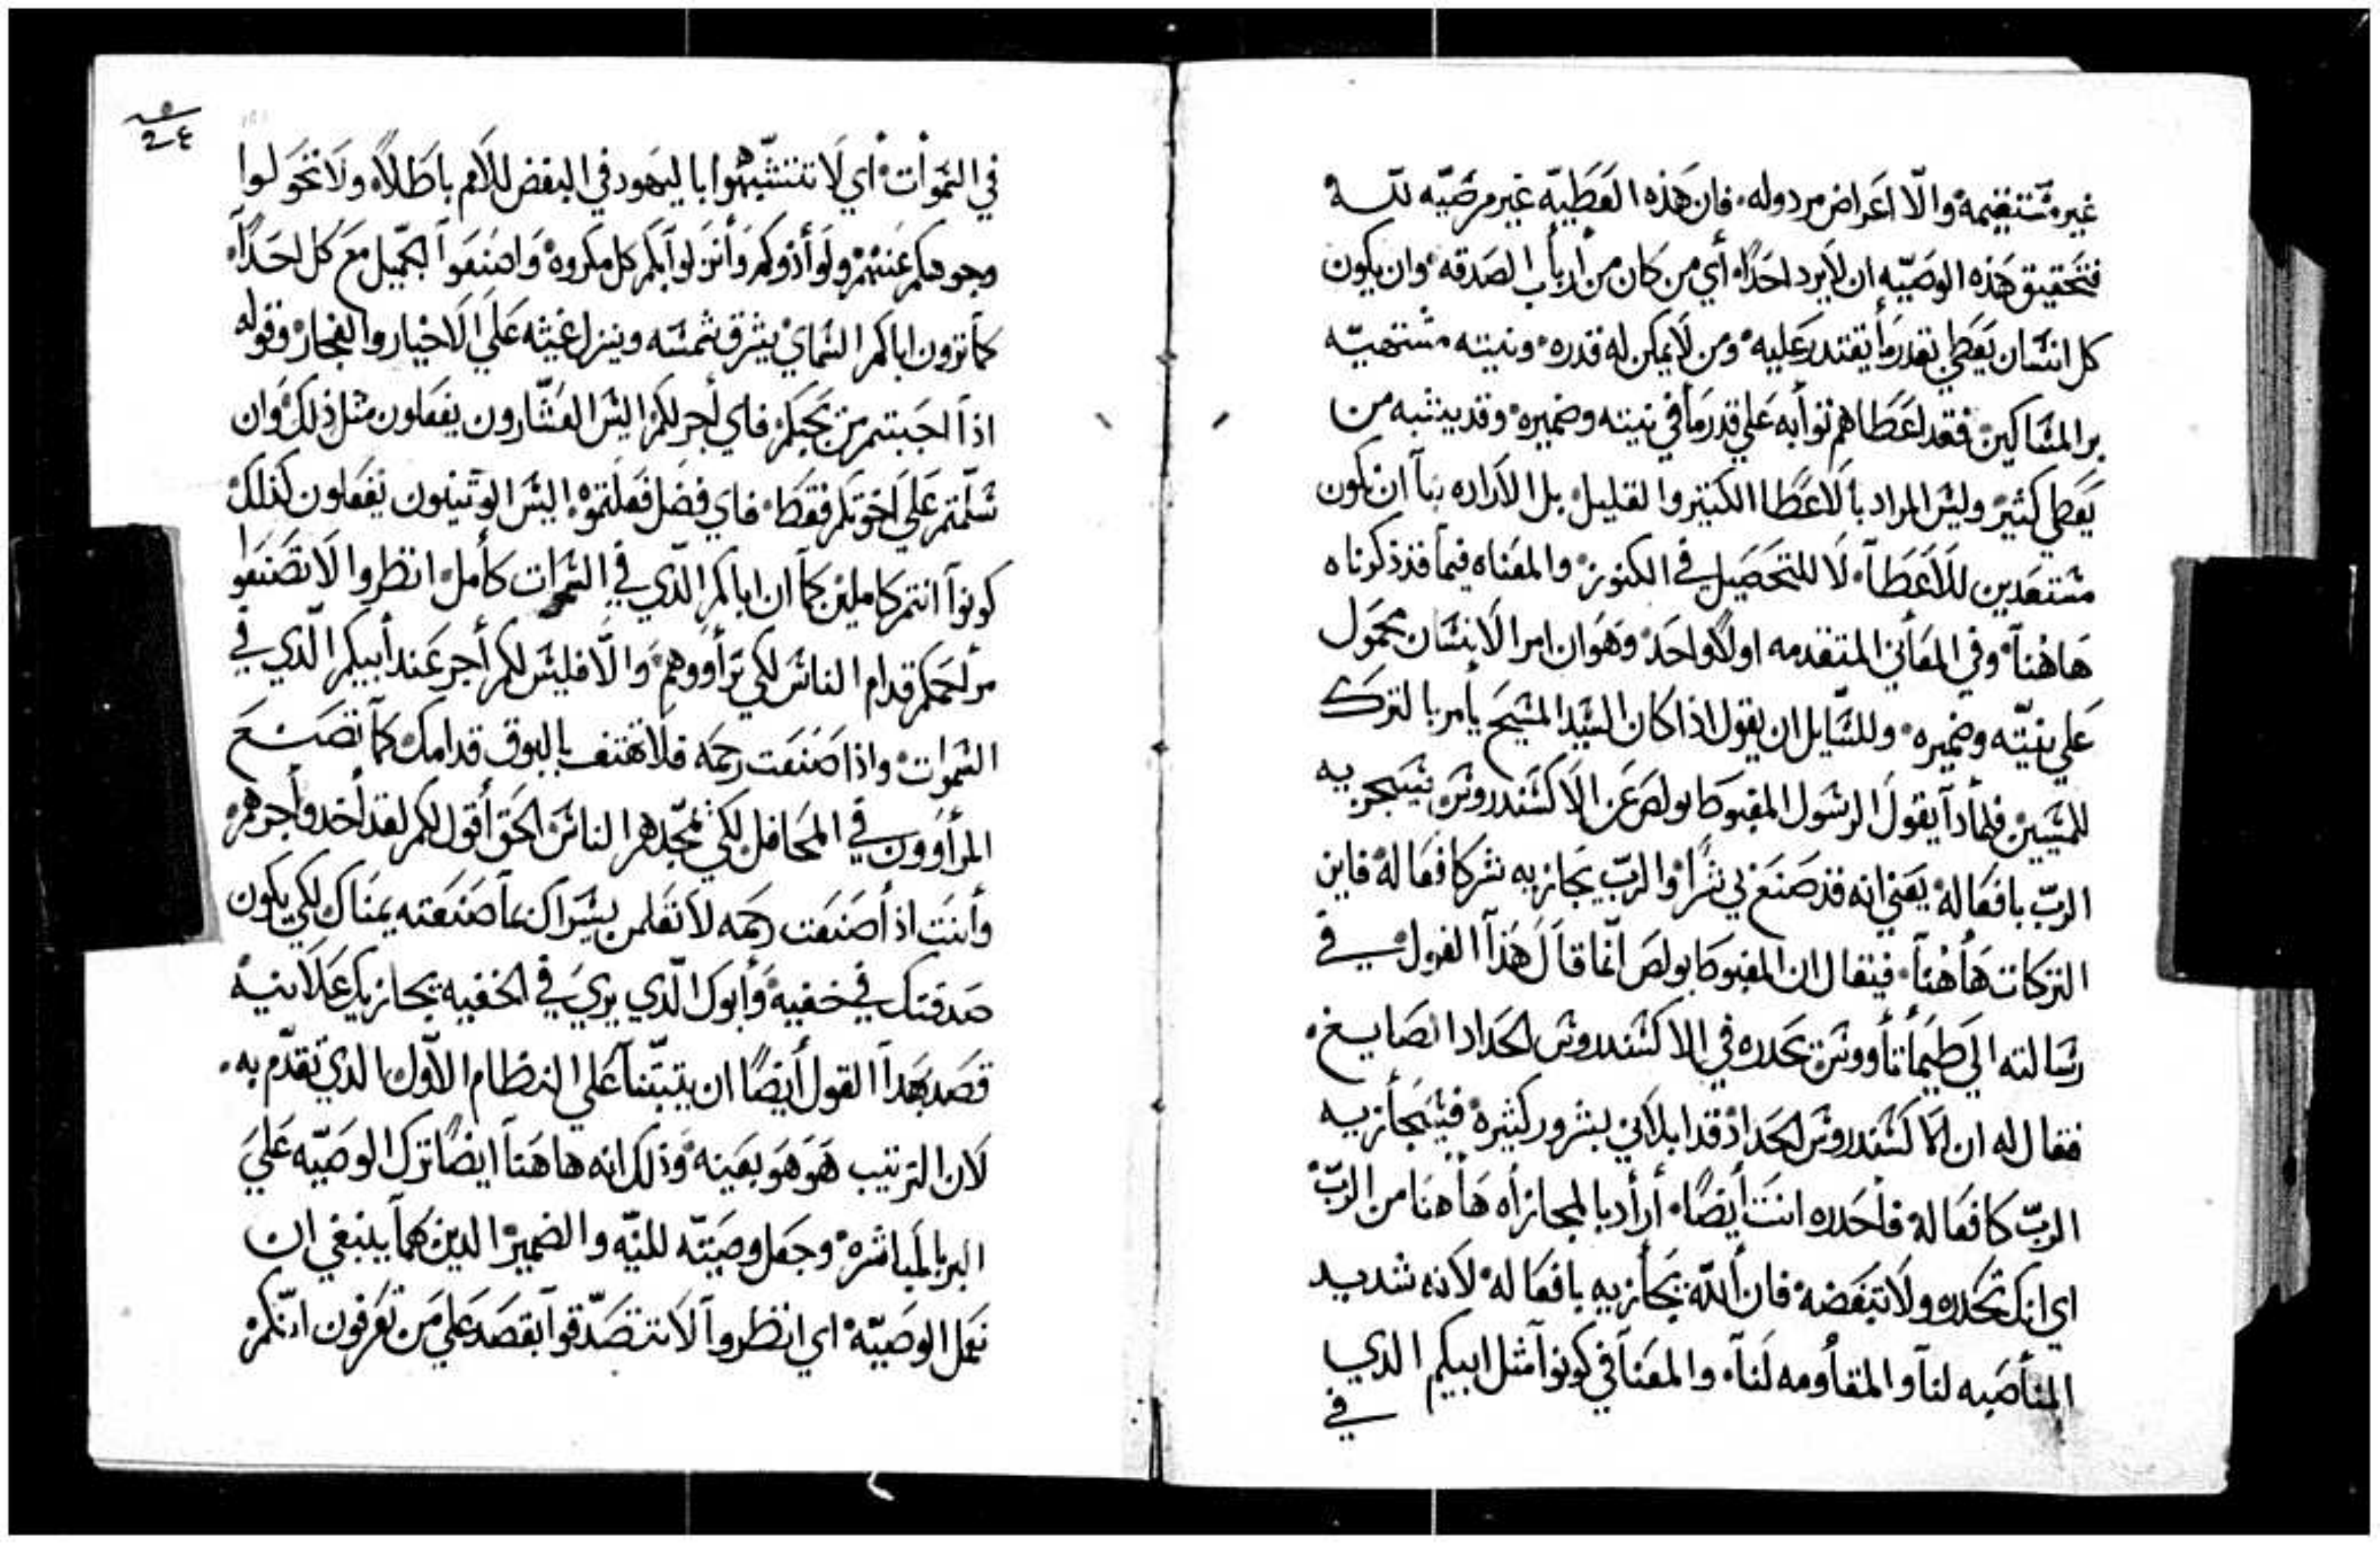 غير مستقيمه والا اعراض مردوله فان هذه العطيه غير مرضيه لله
فتحقيق هذه الوصيه ان لا يرد احدا اي من كان من ارباب الصدقه وان يكون
كل انسان يعطي بقدر ما يقتدر عليه ومن لا يمكن له قدره ونيته مشتهيه
بر المساكين فقد اعطاهم ثوابه علي قدر ما في نيته وضميره وقد يشبه من
يعطي كثير وليس المراد بالاعطا الكثير والقليل بل الاراده بنا ان نكون
مستعدين للاعطا لا للتحصيل في الكنوز والمعناه فيما قد ذكرناه
هاهنا وفي المعاني المتقدمه اولا واحد وهوان امر الانسان محمول
علي نيته وضميره وللسايل ان يقول اذا كان السيد المسيح يأمر بالترك
للمسيين فلماذا يقول الرسول المغبوط بولص عن الاكسندروس سيجزيه
الرب بافعاله يعني انه قد صنع بي شرا والرب يجازيه شر كافعاله فاين
التركات هاهنا فيقال ان المغبوط بولص انما قال هذا القول في
رسالته الي طيماتاووس يحدره في الاكسندروس الحداد الصايغ
فقال له ان الاكسندروس الحداد قد ابلاني بشرور كثيره فيسجازيه
الرب كافعاله فاحدره انت ايضا أراد بالمجازاه هاهنا من الرب
اي انك تحدره ولا تبغضه فان الله يجازيه بافعاله لانه شديد
المناصبه لنا والمقاومه لنا والمعنا في كونوا مثل ابيكم الدي
في
في السموات اي لا تتشبهوا باليهود في البغض للامم باطلا ولا تحولوا
وجوهكم عنهم ولو أذوكم وأنزلوا بكم كل مكروه واصنعوا الجميل مع كل احد
كما ترون اباكم السماي يشرق شمسه وينزل غيثه علي الاخيار والفجار وقوله
اذا احببتم من يحبكم فاي أجر لكم اليس العشارون يفعلون مثل ذلك وان
سلمتم علي اخوتكم فقط فاي فضل فعلتموه اليس الوثنيون يفعلون كذلك
كونوا انتم كاملين كما ان اباكم الذي في السموات كامل انظروا لا تصنعوا
مرلحمكم قدام الناس لكي تراووهم والا فليس لكم أجر عند أبيكم الذي في
السموات واذا صنعت رحمه فلا تهتف بالبوق قدامك كما تصنع
المرأوون في المحافل لكي تمجدهم الناس الحق أقول لكم لقد أخدوا أجرهم
وأنت اذ أصنعت رحمه لا تعلمن يسراك بما صنعته يمناك لكي يكون
صدقتك في خفيه وأبوك الدي يري في الخفيه يجازيك علانيه
قصد بهدا القول أيضا ان يثبتنا علي النظام الاول الدي تقدم به
لان الترتيب هو هو بعينه وذلك انه هاهنا ايضا ترك الوصيه علي
البر بالمباشره وجعل وصيته للنيه والضمير الدين كما ينبغي ان
نعمل الوصيه اي انظروا لا تتصدقوا بقصد علي من تعرفون انكم